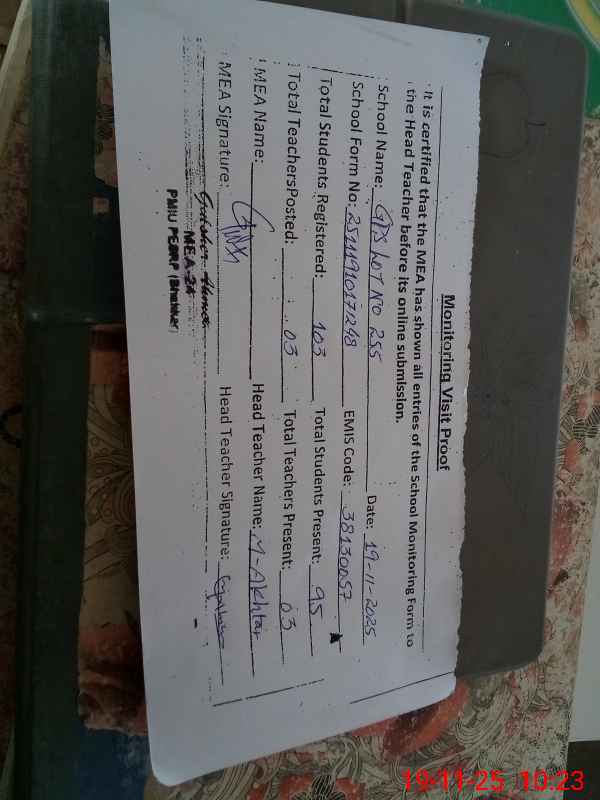 Monitoring Visit Proof
It is certified that the MEA has shown all entries of the School Monitoring Form to
the Head Teacher before its online submission.
School Name: GPS LOT NO 255 Date: 19-11-2025
School Form No: EMIS Code: 38130057
Total Students Registered: 103 Total Students Present: 95
Total TeachersPosted: 03 Total Teachers Present: 03
MEA Name: Head Teacher Name: M-Akhtar
MEA Signature: Head Teacher Signature:
MEA-24
PMIU PESRP (Bhakkar)
19-11-25 10:23